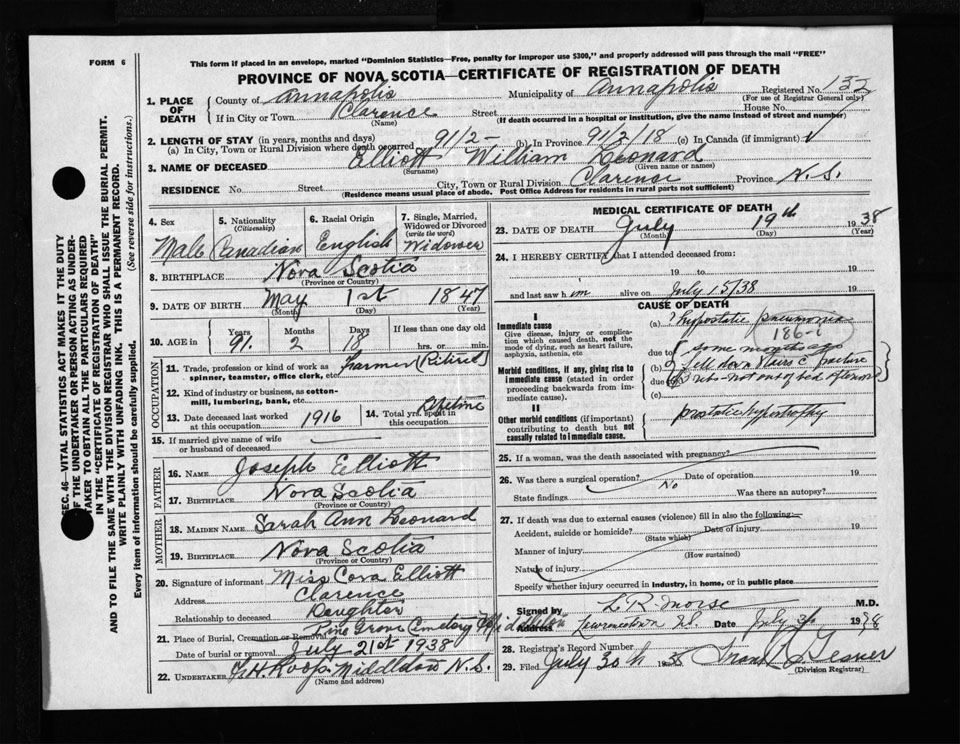 FORM 6
This form if placed in an envelope, marked "Dominion Statistics—Free, penalty for improper use $300," and properly addressed will pass through the mail "FREE"
PROVINCE OF NOVA SCOTIA—CERTIFICATE OF REGISTRATION OF DEATH
Registered No. 132
(For use of Registrar General only)
1. PLACE OF DEATH
County of Annapolis Municipality of Annapolis
If in City or Town Clarence Street House No.
(Name) (If death occurred in a hospital or institution, give the name instead of street and number)
2. LENGTH OF STAY (in years, months and days)
(a) In City, Town or Rural Division where death occurred 91/2- (b) In Province 91/2/18 (c) In Canada (if immigrant) √
3. NAME OF DECEASED Elliott William Leonard
(Surname) (Given name or names)
RESIDENCE No. Street City, Town or Rural Division Clarence Province N.S.
(Residence means usual place of abode. Post Office Address for residents in rural parts not sufficient)
4. Sex Male
5. Nationality (Citizenship) Canadian
6. Racial Origin English
7. Single, Married, Widowed or Divorced (write the word) Widower
8. BIRTHPLACE Nova Scotia
(Province or Country)
9. DATE OF BIRTH May 1st 1847
(Month) (Day) (Year)
10. AGE in Years 91 Months 2 Days 18 If less than one day old hrs. or min.
OCCUPATION
11. Trade, profession or kind of work as spinner, teamster, office clerk, etc. Farmer (Retired)
12. Kind of industry or business, as cotton-mill, lumbering, bank, etc.
13. Date deceased last worked at this occupation 1916
14. Total yrs. spent in this occupation Lifetime
15. If married give name of wife or husband of deceased
FATHER
16. Name Joseph Elliott
17. Birthplace Nova Scotia
(Province or Country)
MOTHER
18. Maiden Name Sarah Ann Leonard
19. Birthplace Nova Scotia
(Province or Country)
20. Signature of informant Miss Cora Elliott
Address Clarence
Relationship to deceased Daughter
21. Place of Burial, Cremation or Removal Pine Grove Cemetery Middleton
Date of burial or removal July 21st 1938
22. UNDERTAKER F.H. Roop Middleton N.S.
(Name and address)
MEDICAL CERTIFICATE OF DEATH
23. DATE OF DEATH July 19th 1938
(Month) (Day) (Year)
24. I HEREBY CERTIFY that I attended deceased from:
19 to 19
and last saw him alive on July 15/38 19
CAUSE OF DEATH
I
Immediate cause
Give disease, injury or complication which caused death, not the mode of dying, such as heart failure, asphyxia, asthenia, etc
(a) hypostatic pneumonia
186-
Morbid conditions, if any, giving rise to immediate cause (stated in order proceeding backwards from immediate cause).
due to some months ago
(b) fell down stairs c fracture
due to ribs - not out of bed afterwards
(c)
II
Other morbid conditions (if important) contributing to death but not causally related to immediate cause.
prostatic hypertrophy
25. If a woman, was the death associated with pregnancy?
26. Was there a surgical operation? No Date of operation 19
State findings Was there an autopsy?
27. If death due to external causes (violence) fill in also the following:—
Accident, suicide or homicide? Date of injury 19
(State which)
Manner of injury
(How sustained)
Nature of injury
Specify whether injury occurred in industry, in home, or in public place
Signed by L R Morse M.D.
Address Lawrencetown N.S. Date July 1938
28. Registrar's Record Number
29. Filed July 30th 1938
(Division Registrar)
SEC. 46—VITAL STATISTICS ACT MAKES IT THE DUTY
OF THE UNDERTAKER OR PERSON ACTING AS UNDER-
TAKER TO OBTAIN ALL THE PARTICULARS REQUIRED
IN THE "CERTIFICATE OF REGISTRATION OF DEATH"
AND TO FILE THE SAME WITH THE DIVISION REGISTRAR WHO SHALL ISSUE THE BURIAL PERMIT.
WRITE PLAINLY WITH UNFADING INK. THIS IS A PERMANENT RECORD.
Every item of information should be carefully supplied. (See reverse side for instructions.)